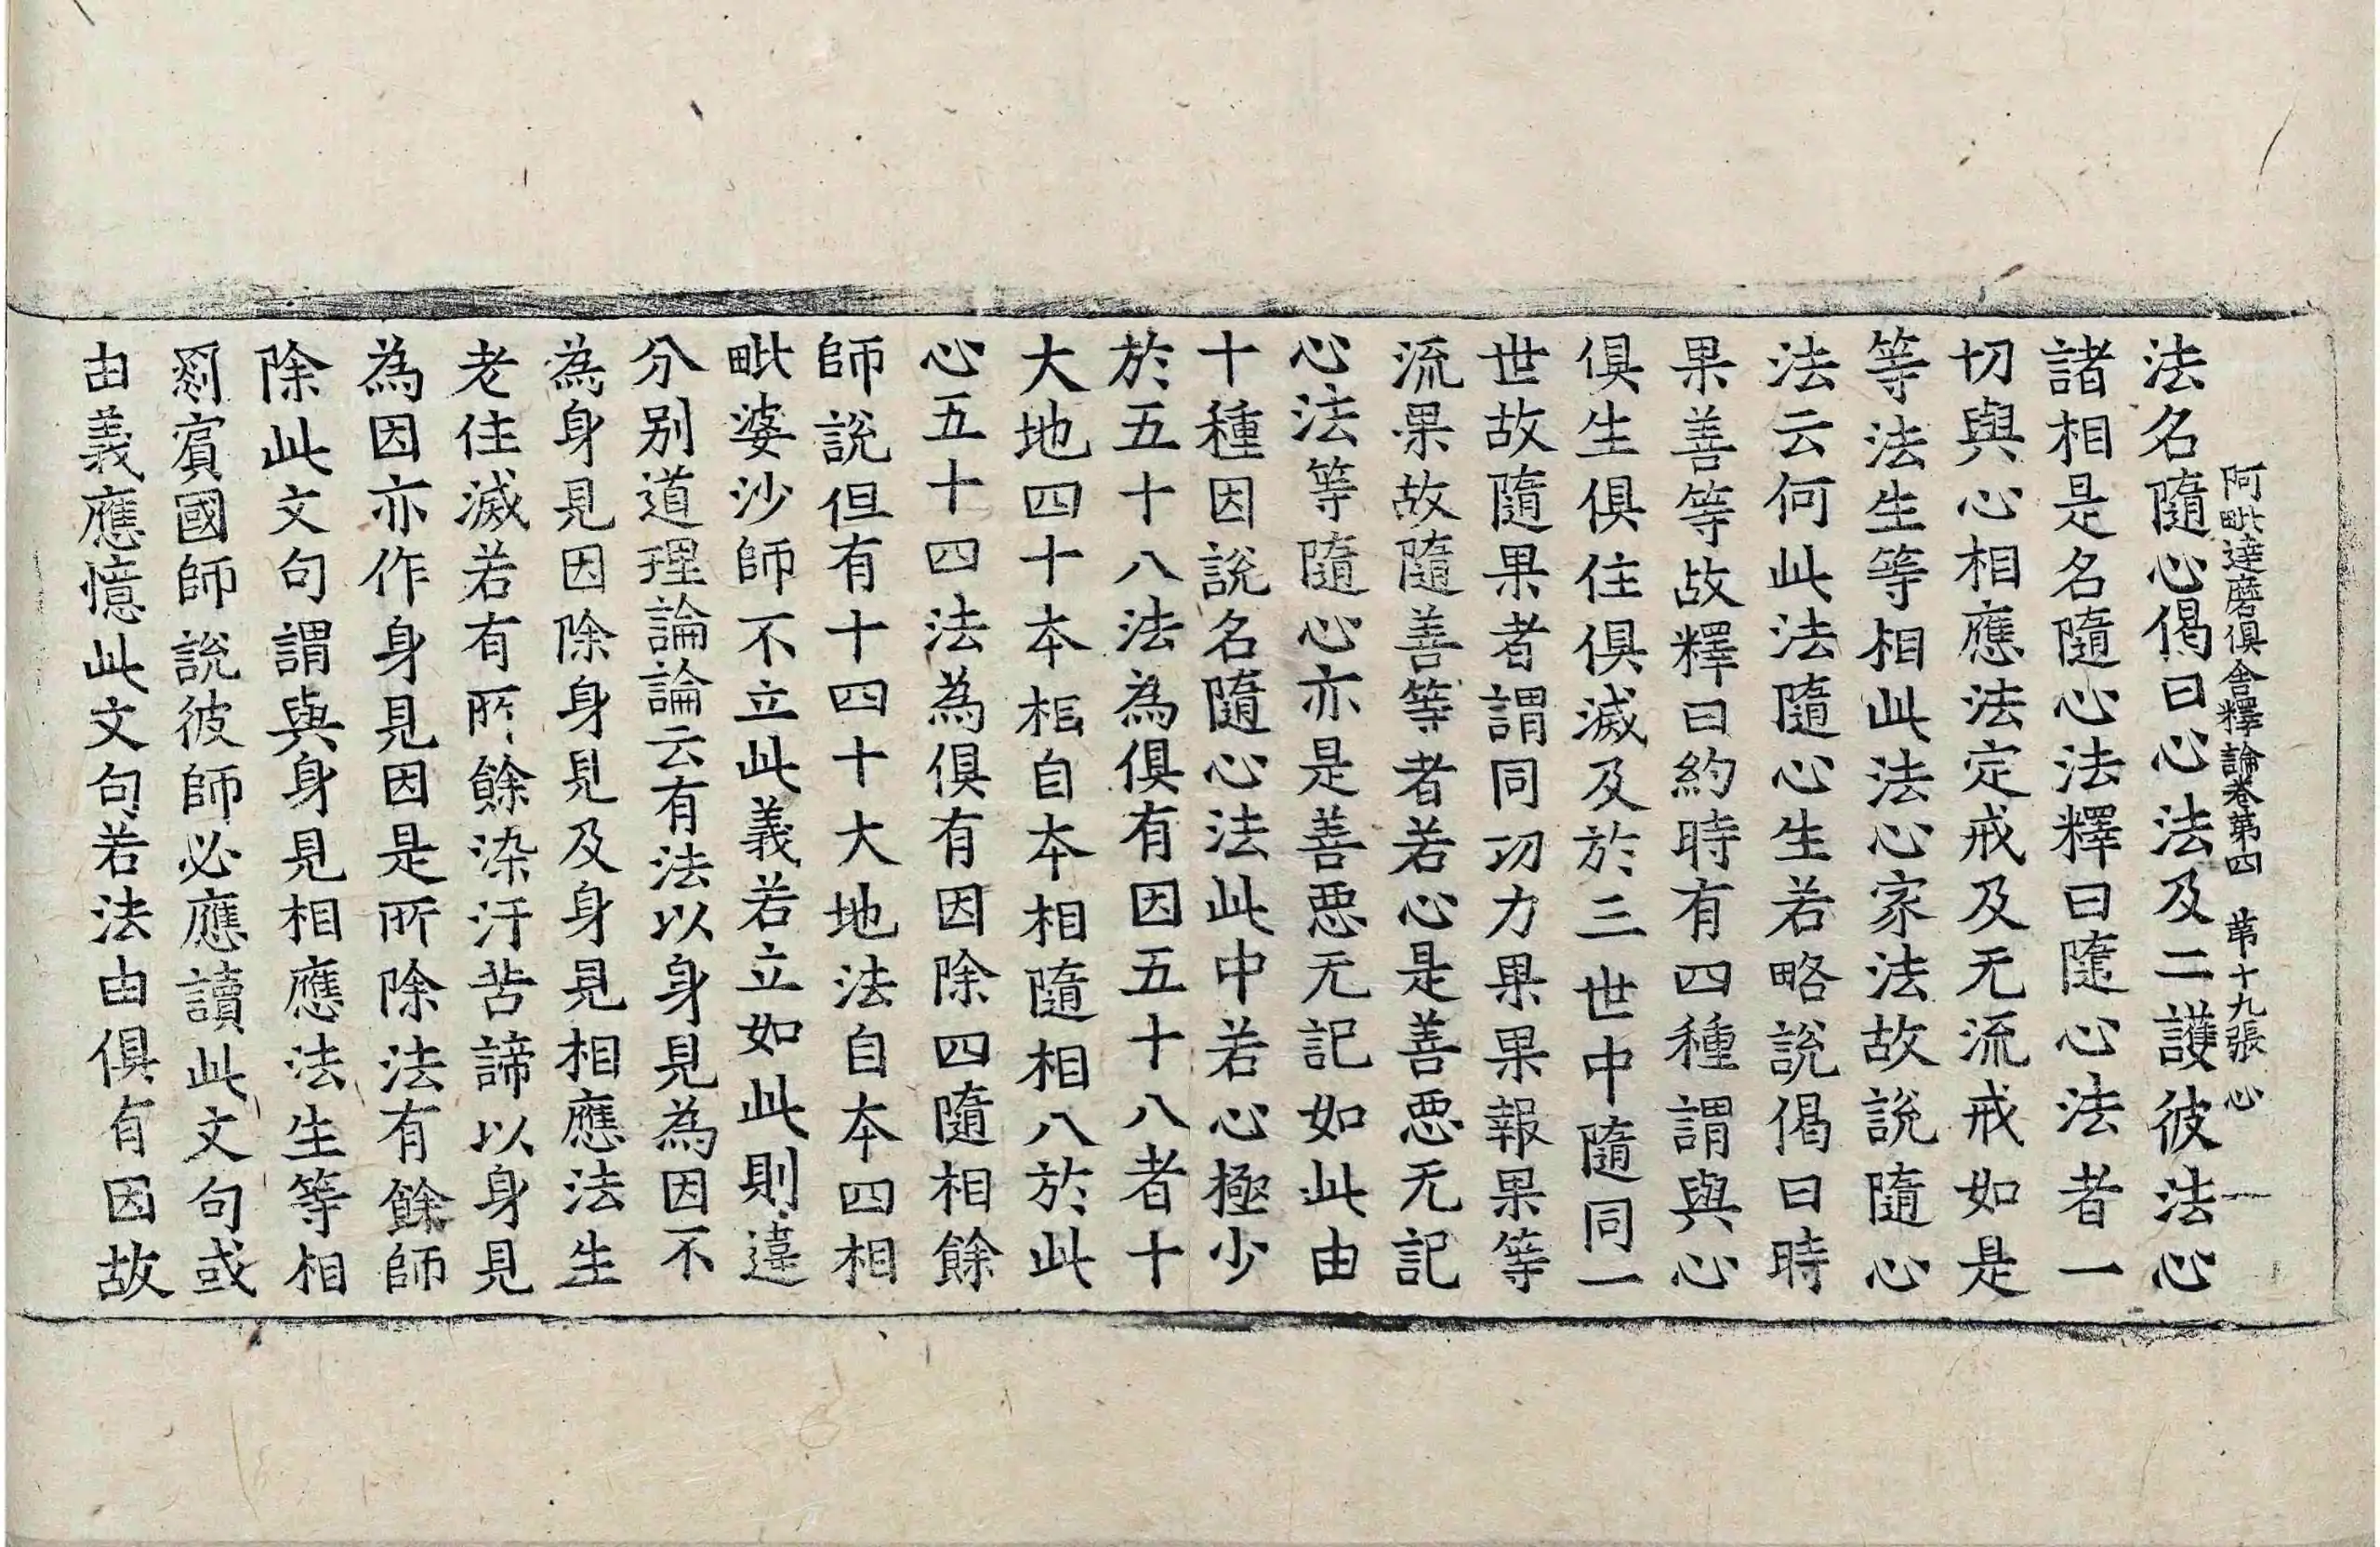 阿毗達磨俱舍釋論卷第四　苐十九張　心
法名隨心偈曰心法及二護彼法心
諸相是名隨心法釋曰隨心法者一
切與心相應法定戒及无流戒如是
等法生等相此法心家法故說隨心
法云何此法隨心生若略說偈曰時
果善等故釋曰約時有四種謂與心
俱生俱住俱滅及於三世中隨同一
世故隨果者謂同功力果果報果等
流果故隨善等者若心是善惡无記
心法等隨心亦是善惡无記如此由
十種因說名隨心法此中若心極少
於五十八法為俱有因五十八者十
大地四十本相自本相隨相八於此
心五十四法為俱有因除四隨相餘
師說但有十四十大地法自本四相
毗婆沙師不立此義若立如此則違
分別道理論論云有法以身見為因不
為身見因除身見及身見相應法生
老住滅若有所餘染汙苦諦以身見
為因亦作身見因是所除法有餘師
除此文句謂與身見相應法生等相
罽賓國師說彼師必應讀此文句或
由義應憶此文句若法由俱有因故